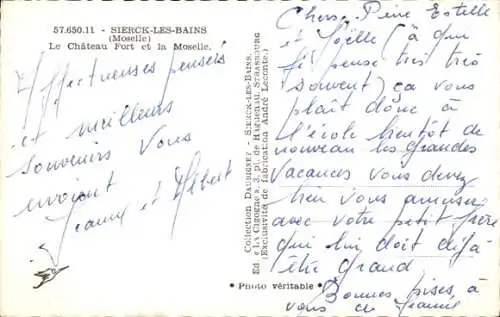 57.650.11 - SIERCK-LES-BAINS
(Moselle)
Le Château Fort et la Moselle.
Affectueuses pensées
et meilleurs
souvenirs Vous
envoient
Jeanne et Albert
Collection DAUBIGNEY - SIERCK-LES-BAINS.
Ed « La Cigogne », 3, pl. de Haguenau, STRASBOURG
(Exclusivité de fabrication André Leconte.)
• Photo véritable •
Chers Estelle
et Joëlle (à qui
je pense très très
souvent) ça vous
plaît donc à
l'école bientôt de
nouveau les grandes
vacances vous devez
bien vous amuser
avec votre petit frère
qui lui doit déjà
être grand
Bonnes bises, à
vous Jeanne